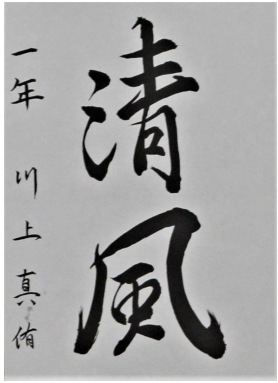 清風
一年 川上真侑